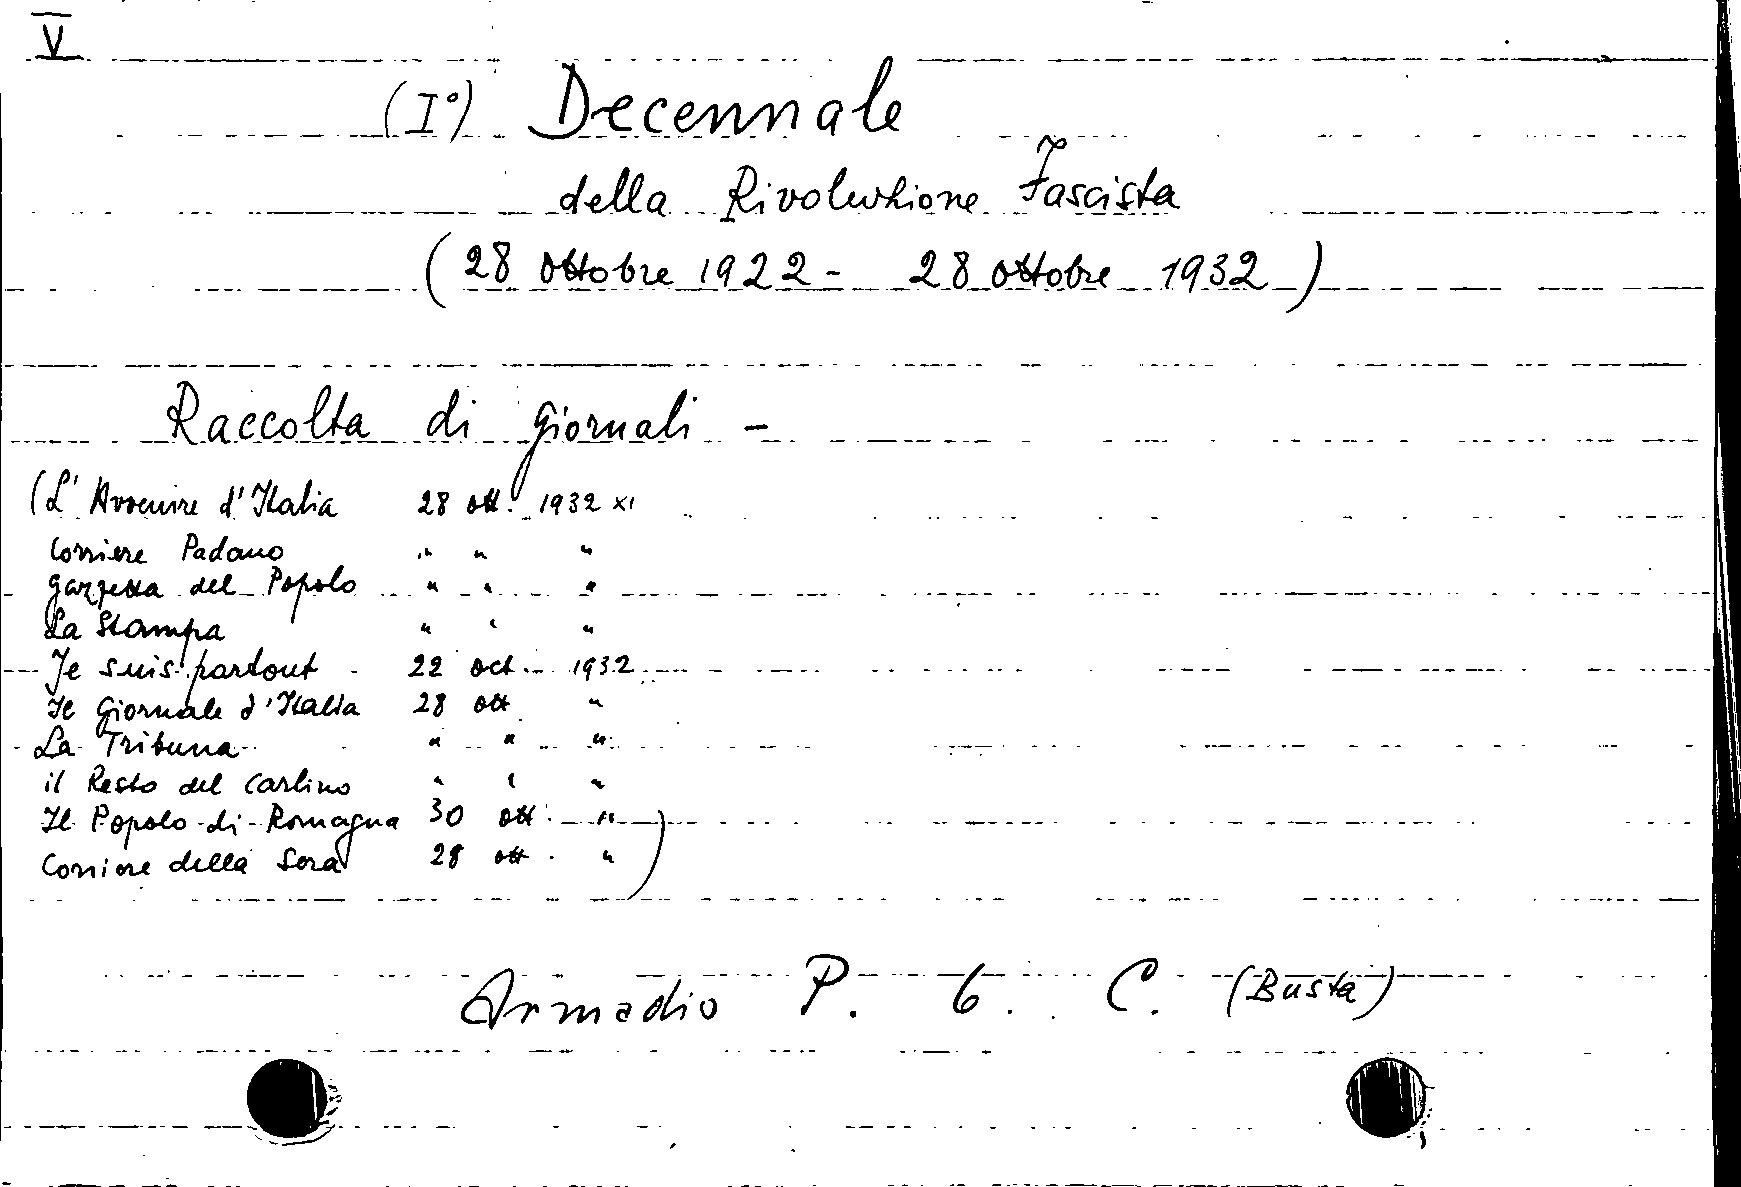 V
(I°) Decennale
della Rivoluzione Fascista
(28 Ottobre 1922 - 28 Ottobre 1932)
Raccolta di Giornali -
(L'Avvenire d'Italia 28 Ott. 1932 XI
Corriere Padano " " "
Gazzetta del Popolo " " "
La Stampa " " "
Je suis partout 22 oct. 1932
Il Giornale d'Italia 28 ott "
La Tribuna " " "
il Resto del Carlino " " "
Il Popolo di Romagna 30 ott. "
Corriere della Sera 28 ott. " )
Armadio P. 6. C. (Busta)